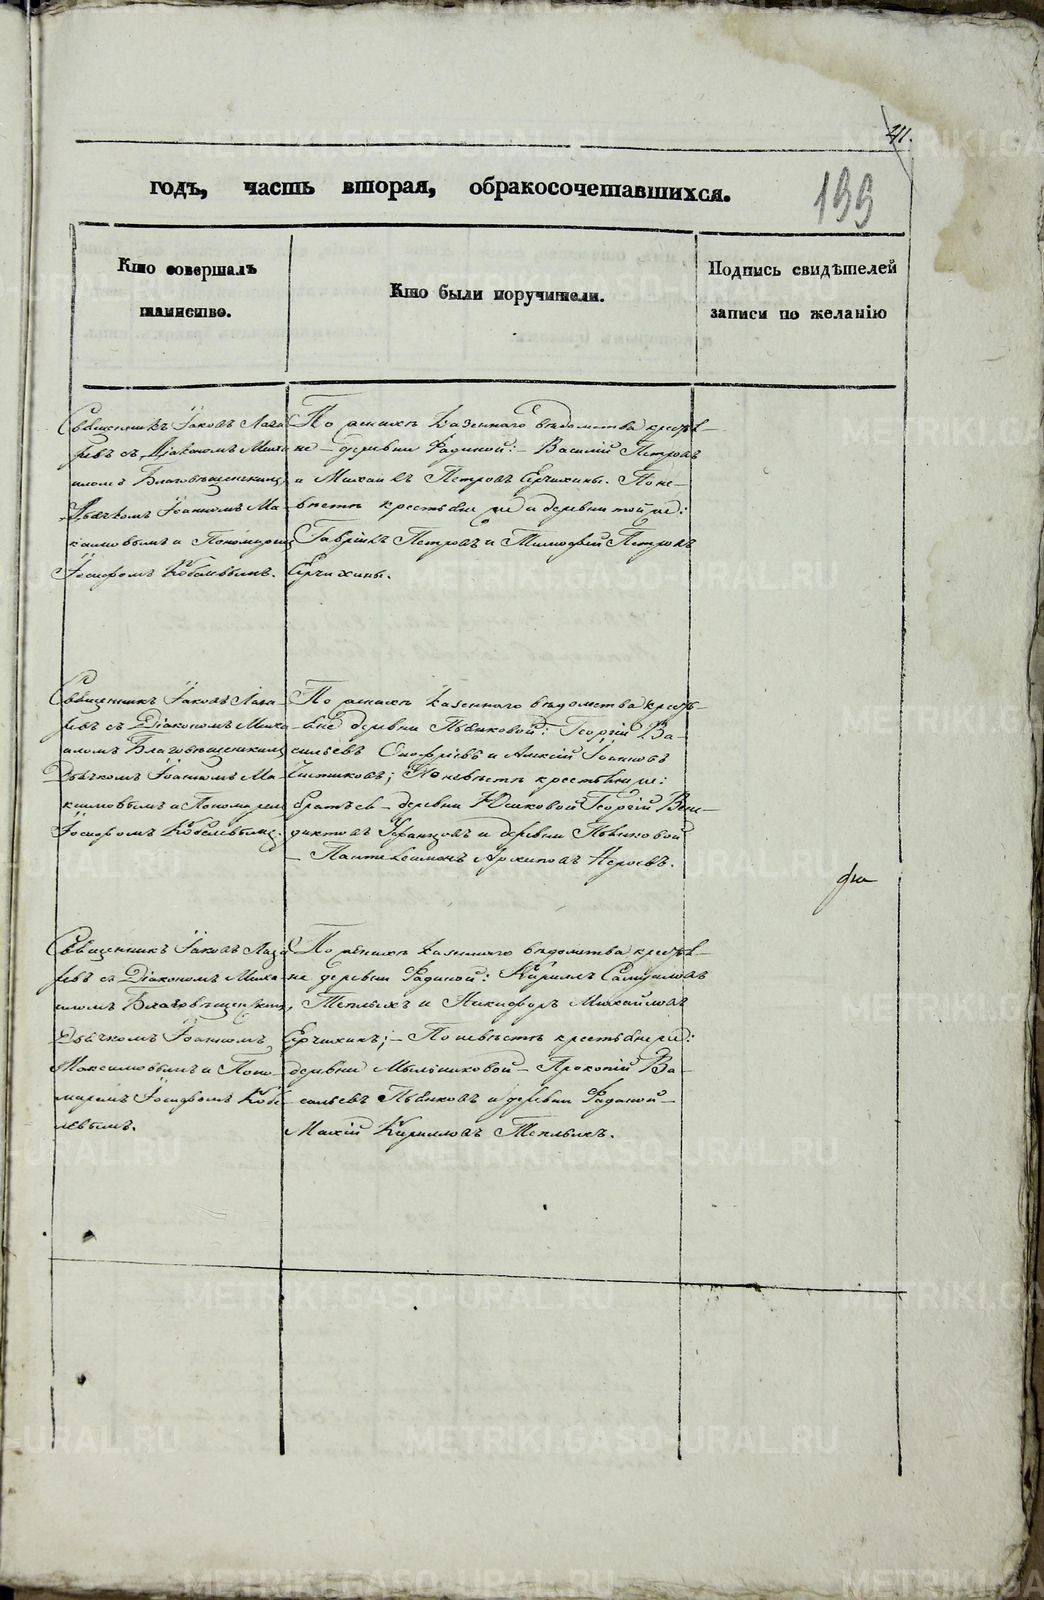 41.
199
годъ, часть вторая, обракосочетавшихся.
Кто совершалъ
таинство.
Кто были поручители.
Подпись свидѣтелей
записи по желанію
Священникъ Іаковъ Лаза
ревъ съ Діакономъ Миха
иломъ Благовѣщенскимъ
Дьячкомъ Іоанномъ Ма
ксимовымъ и Пономаремъ
Іосифомъ Кобелевымъ.
По женихѣ казеннаго вѣдомства крестья
не – деревни Фадиной: – Василій Петровъ
и Михаилъ Петровъ Ерчихины. По не–
вѣстѣ крестьяне же и деревни той же:
Гавріилъ Петровъ и Тимофей Петровъ
Ерчихины.
Священникъ Іаковъ Лаза–
ревъ съ Діакономъ Миха
иломъ Благовѣщенскимъ
Дьячкомъ Іоанномъ Ма–
ксимовымъ и Пономаремъ
Іосифомъ Кобелевымъ.
По женихѣ казеннаго вѣдомства кресть–
яне деревни Пьянковой: Георгій Ва–
сильевъ Онофріевъ и Алексій Іоанновъ
Чистяковъ; По невѣстѣ крестьяне же:
деревни Юшковой Георгій Вене–
диктовъ и деревни Пьянковой
– Пантелеимонъ Архиповъ
Священникъ Іаковъ Лаза
ревъ съ Діакономъ Миха–
иломъ Благовѣщенскимъ,
Дьячкомъ Іоанномъ
Максимовымъ и Поно–
маремъ Іосифомъ Кобе
левымъ.
По женихѣ казеннаго вѣдомства крестья–
не деревни Фадиной: Кириллъ Самуиловъ
Теплыхъ и Никифоръ Михайловъ
Ерчихинъ; – По невѣстѣ крестьяне же:
деревни Мыльниковой – Прокопій Ва–
сильевъ Пьянковъ и деревни Фадиной –
Кирилловъ Теплыхъ.
METRIKI.GASO-URAL.RU